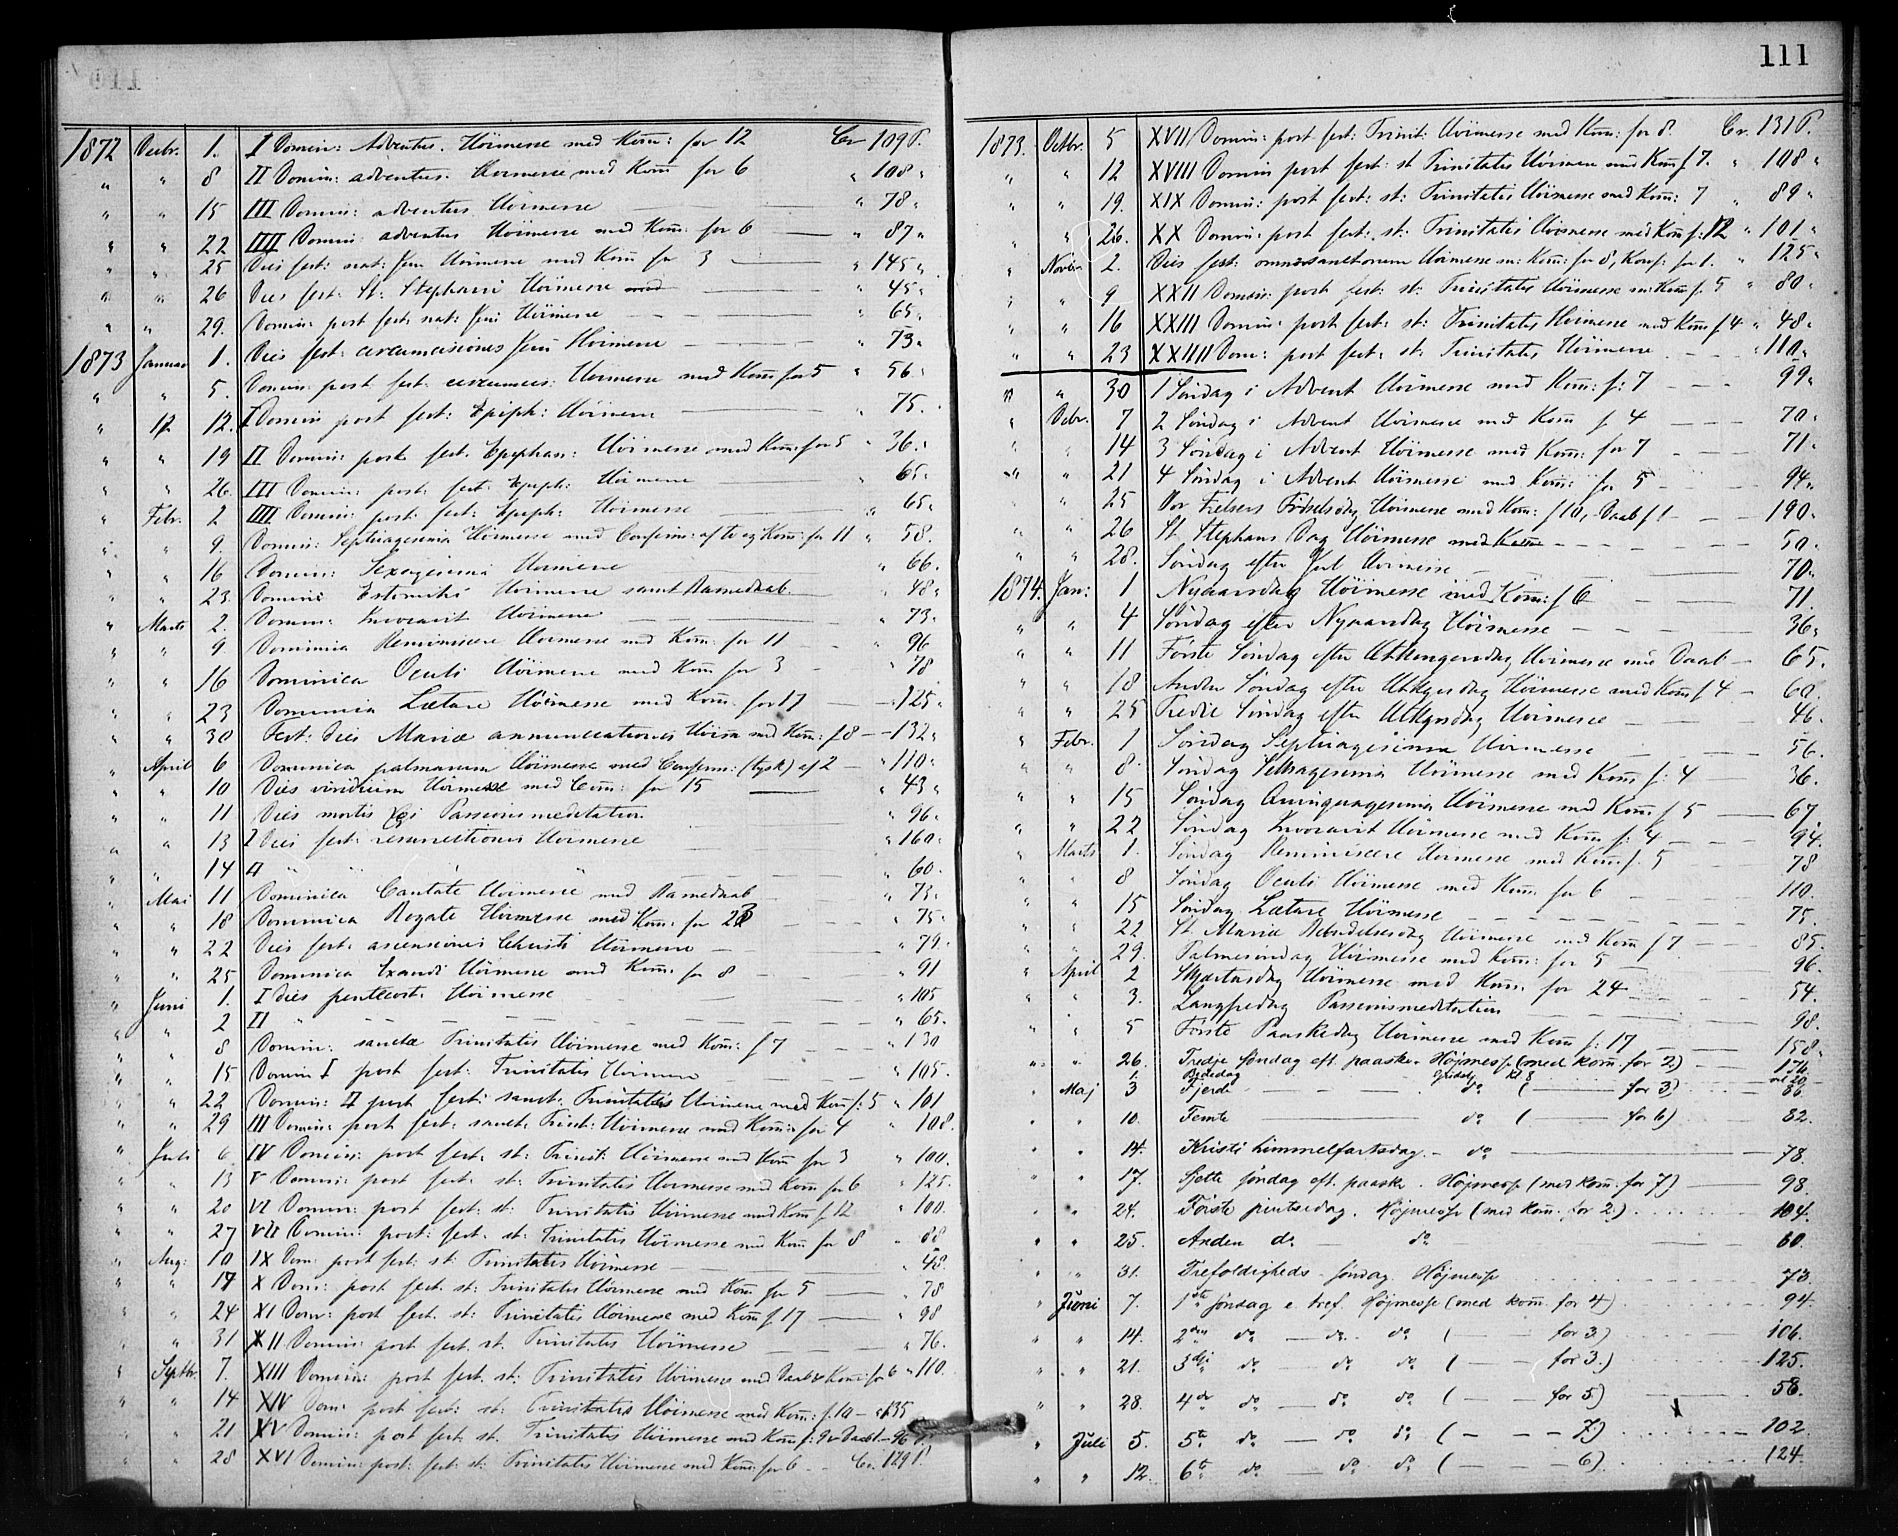 111
1872 Decbr. 1. I Domin: Adventus. Höimesse med Kom: for 12 Ca 109 P.
" " 8 II Domin: adventus. Höimesse med Kom for 6 " 108 "
" " 15 III Domin: adventus Höimesse " 78 "
" " 22 IIII Domin: adventus Höimesse med Kom: for 6 " 87 "
" " 25 Dies fest: nat: Jesu Höimesse med Kom for 3 " 145 "
" " 26 Dies fest: St: Stephani Höimesse med " 45 "
" " 29. Domin: post fest: nat: Jesu Höimesse " 65 "
1873 Januar 1. Dies fest: circumcisiones Jesu Höimesse " 73 "
" " 5. Domin: post fest: circumcis: Höimesse med Kom for 5 " 56 "
" " 12. I Domin post fest: Epiph: Höimesse " 75.
" " 19 II Domin: post fest. Epiphan: Höimesse med Kom: for 5 " 36 "
" " 26. III Domin: post: fest: Epiph: Höimesse " 65 "
" Febr. 2 IIII Domin: post: fest: Epiph: Höimesse " 65 "
" " 9. Domin: Septuagesima Höimesse med Confirm: af to og Kom: for 11 " 58.
" " 16 Domin: Sexagesima Höimesse " 66.
" " 23 Dominica Estomihi Höimesse samt Barnedaab " 48 "
" Marts 2. Domin: Invocavit Höimesse " 73 "
" " 9 Dominica Reminiscere Höimesse med Kom: for 11 " 96
" " 16 Dominica Oculi Höimesse med Kom for 3 " 78
" " 23 Dominica Lætare Höimesse med Kom. for 17 " 125 "
" " 30 Fest: Dies Mariæ annunciationis Höim med Kom: f 8 " 132 "
" April 6 Dominica palmarum Höimesse med Confirm: (tysk) af 2 " 110 "
" " 10 Dies viridium Höimesse med Com: for 15 " 43 "
" " 11 Dies mortis Xsi Passionsmeditation " 96 "
" " 13 I Dies fest: resurrectionis Höimesse " 160 "
" " 14 II " " " " 60.
" Mai 11 Dominica Cantate Höimesse med Barnedaab " 73 "
" " 18 Dominica Rogate Höimesse med Kom: for 23 " 75 "
" " 22 Dies fest: ascensionis Christi Höimesse " 79 "
" " 25 Dominica Exaudi Höimesse med Kom: for 8 " 91
" Juni 1. I dies pentecost: Höimesse " 105
" " 2 II " " 65.
" " 8 Domin: sanctæ Trinitatis Höimesse med Kom: f 7 " 130
" " 15 Domin I post fest: Trinitatis Höimesse " 105.
" " 22 Domin: II post fest: sanct. Trinitatis Höimesse med Kom f: 5 " 101
" " 29 III Domin: post fest: sanct: Trinit: Höimesse med Kom: for 4 " 108.
" Juli 6 IV Domin: post fest: st: Trinit: Höimesse med Kom for 3 " 100.
" " 13 V Domin: post fest: st: Trinitatis Höimesse med Kom for 6 " 125.
" " 20 VI Domin: post fest: st: Trinitatis Höimesse med Kom f. 12 " 100.
" " 27 VII Domin: post: fest: st: Trinitatis Höimesse med Kom for 8 " 88
" Aug: 10 IX Dom: post fest: st: Trinitatis Höimesse " 48.
" " 17 X Dom: post fest. st: Trinitatis Höimesse med Kom for 5 " 78
" " 24 XI Dom: post fest. st: Trinitatis Höimesse med Kom f. 17 " 98
" " 31 XII Domin: post fest. st. Trinitatis Höimesse " 76.
" Septbr. 7. XIII Domin: post fest. st: Trinitatis Höimesse med Daab & Kom: for 6 " 110.
" " 14 XIV Dom: post fest: st: Trinitatis Höimesse med Kom: f. 10 " 135
" " 21 XV Domin: post fest. st. Trinitatis Höimesse med Kom f: 9 Daab 1 " 96
" " 28 XVI Domin: post: fest: st: Trinitatis Höimesse med Kom: for 6 Ca. 129 P.
1873. Octbr. 5 XVII Domin: post fest: Trinit: Höimesse med Kom: for 8. Ca. 131 P.
" " 12 XVIII Domin post fest: st Trinitatis Höimesse med Kom f 7. " 108 "
" " 19. XIX Domin: post fest: st: Trinitatis Höimesse med Kom: 7 " 89 "
" " 26. XX Domin: post fest: st: Trinitatis Höimesse med Kom f: 12 " 101 "
" Novbr 2. Dies fest: omnium sanctorum Höimesse m: Kom: for 8, Konf: for 1. " 125 "
" " 9 XXII Domin: post fest: st: Trinitatis Höimesse m: Kom f. 5 " 80 "
" " 16 XXIII Domin: post fest: st: Trinitatis Höimesse med Kom f 4 " 48 "
" " 23 XXIIII Dom: post fest: st: Trinitatis Höimesse " 110 "
" " 30 1 Söndag i Advent Höimesse med Kom: f: 7 99 "
" Debr. 7 2 Söndag i Advent Höimesse med Kom f 4 70 "
" " 14 3 Söndag i Advent Höimesse med Kom: for 7 71 "
" " 21 4 Söndag i Advent Höimesse med Kom: for 5 94 "
" " 25 Vor Frelsers Fødselsdag Höimesse med Kom: f 10, Daab f 1 190 "
" " 26 St Stephans Dag Höimesse med Kom 50 "
" " 28. Söndag efter Jul Höimesse 70 "
1874. Jan: 1 Nyaarsdag Höimesse med Kom: f 6 71.
" " 4 Söndag efter Nyaarsdag Höimesse 36 "
" " 11 Förste Söndag efter Hltrekongersdag Höimesse med Daab 65.
" " 18 Anden Söndag efter Hltkgrsdag Höimesse med Kom f 4 60.
" " 25 Tredie Söndag efter Hltkgrsdag Höimesse 46.
" Febr. 1 Söndag Septuagesima Höimesse 56.
" " 8. Söndag Sexagesima Höimesse med Kom f: 4 36.
" " 15 Söndag Quinquagesima Höimesse med Kom f 5 67.
" " 22 Söndag Invocavit Höimesse med Kom f: 4 94.
" Marts 1. Söndag Reminiscere Höimesse med Kom: f. 5 78
" " 8 Söndag Oculi Höimesse med Kom: for 6 110.
" " 15 Söndag Lætare Höimesse 75.
" " 22 St Mariæ Bebudelsesdag Höimesse med Kom f 7 85.
" " 29. Palmesöndag Höimesse med Kom: for 5 96.
" April 2 Skjærtorsdag Höimesse med Kom: for 24 54.
" " 3. Langfredag Passionsmeditation 98.
" " 5 Förste Paaskedag Höimesse med Kom f: 17 158 "
" " 26. Tredje søndag eft. paaske. Højmesse (med kom. for 2.) 176
1. Bededag Gudstj. kl 8
" Maj 3 Fjerde do (— for 3.) 86
" " 10. Femte do (— for 6) 82.
" " 14. Kristi himmelfartsdag. do 78.
" " 17. Sjette søndag eft. paaske. Højmesse (med kom. for 7) 98.
" " 24. Første pintsedag. Højmesse (med kom. for 2.) 104.
" " 25. Anden do do 60.
" " 31. Trefoldigheds-søndag Højmesse 73.
" Juni 7. 1ste søndag e. tref. Højmesse (med kom. for 4) 94.
" " 14. 2den do — do. do (— for 3.) 106.
" " 21. 3dje do — do do (— for 3.) 125.
" " 28. 4de do — do do (— for 5) 58.
" Juli 5. 5te do — do do (— 7) 102.
" " 12. 6te do — do do (— 6) 124.